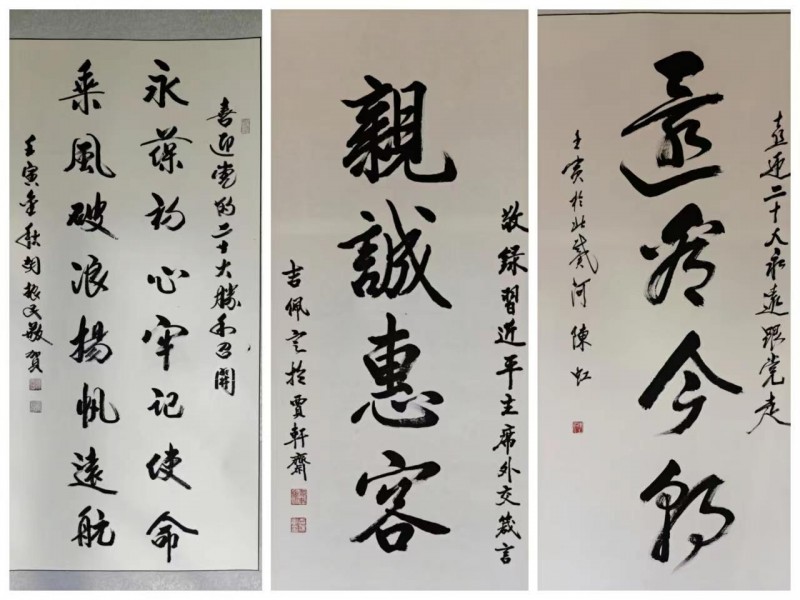 喜迎党的二十大勝利召開
永葆初心牢記使命
乘風破浪揚帆遠航
壬寅金秋敬賀
敬録習近平主席外交箴言
親誠惠容
吉佩於賈軒齋
喜迎二十大永遠跟党走
還看今朝
壬寅於北戴河陳虹